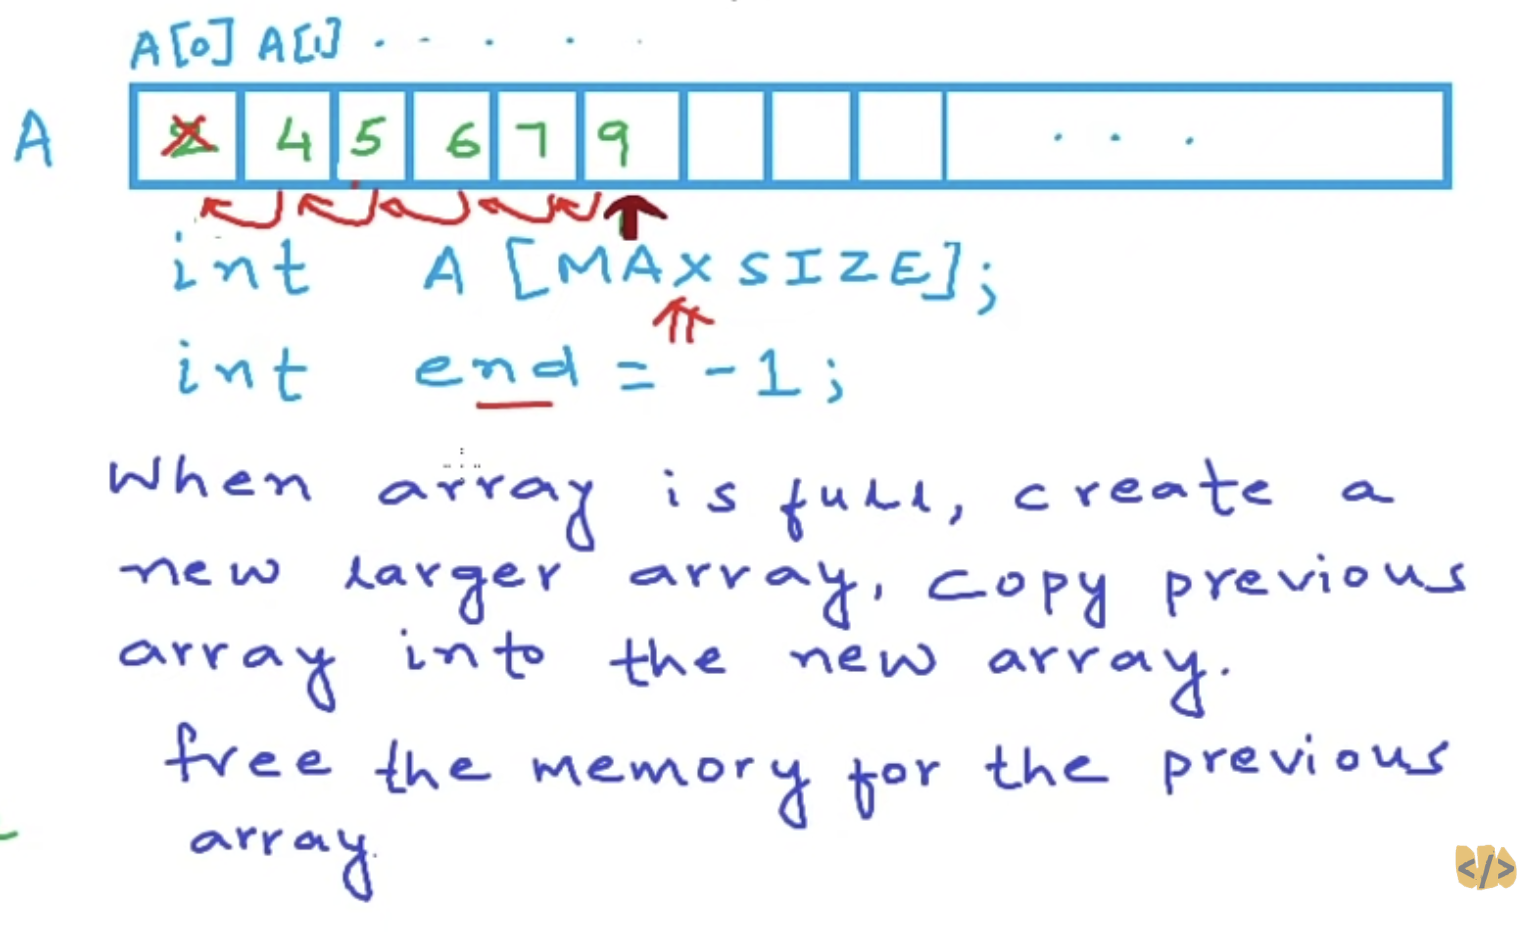 A[0] A[1] . . . . .
A 2 4 5 6 7 9 . . .
int A [MAXSIZE];
int end = -1;
When array is full, create a
new larger array, copy previous
array into the new array.
free the memory for the previous
array.
</>